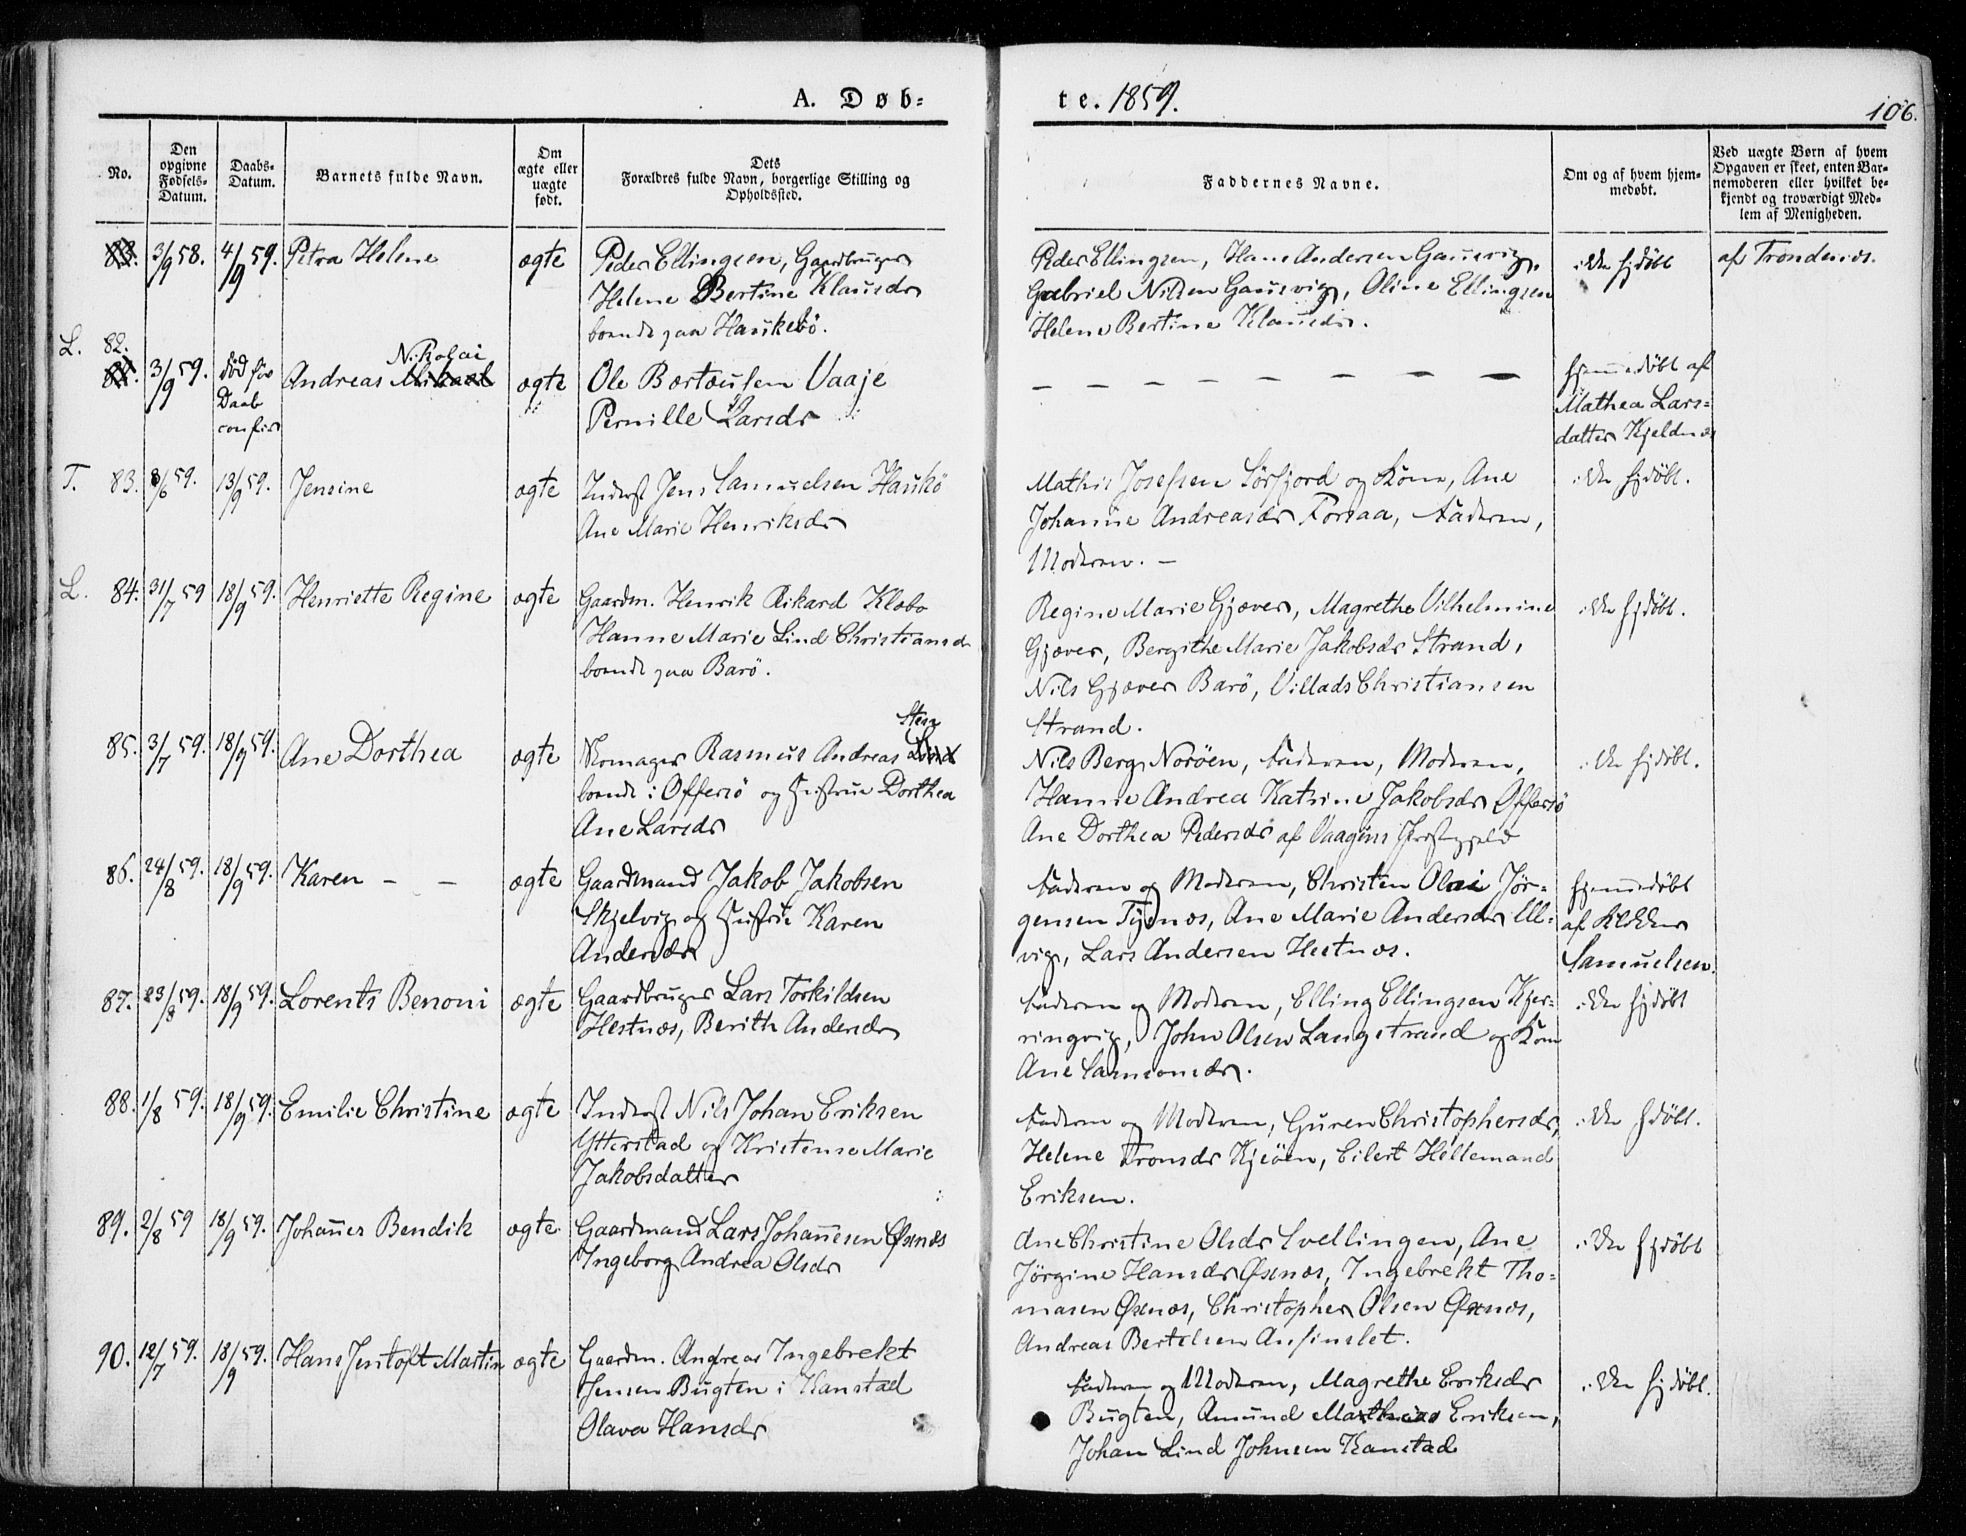 A. Døb-
te. 1859.
106.
No.
Den opgivne Fødsels-Datum.
Daabs-Datum.
Barnets fulde Navn.
Om ægte eller uægte født.
Dets
Forældres fulde Navn, borgerlige Stilling og
Opholdssted.
Faddernes Navne.
Om og af hvem hjem-
medøbt.
Ved uægte Børn af hvem
Opgaven er skeet, enten Bar-
nemoderen eller hvilket be-
kjendt og troværdigt Med-
lem af Menigheden.
83. 3/9 58. 4/9 59. Petra Helene ægte
Peder Ellingsen, Gaardbruger
Helene Bertine Klausdr
boende paa Haukebø.
Peder Ellingsen, Hans Andersen Gausvig,
Gabriel Nilsen Gausvig, Oline Ellingsen
Helene Bertine Klausdr.
ikke hjdøbt
af Trondenæs.
L. 82.
84. 3/9 59. død før Daab confir Andreas Mikael Nikolai ægte
Ole Bertæusen Vaaje
Pernille Larsdr
— — — — — — — —
hjemmedøbt af
Mathea Lars-
datter Kjeldnæs
T. 83. 8/6 59. 13/9 59. Jensine ægte
Inderst Jens Samuelsen Haukø
Ane Marie Henriksdr
Mathis Josefsen Sørfjord og Kone, Ane
Johanne Andreasdr Forsaa, Faderen,
Moderen. —
ikke hjdøbt.
L. 84. 31/7 59 18/9 59. Henriette Regine ægte
Gaardm. Henrik Rikard Klæbo
Hanne Marie Lind Christiansdr
boende paa Barø.
Regine Marie Gjæver, Magrethe Vilhelmine
Gjæver, Bergithe Marie Jakobsdr Strand,
Nils Gjæver Barø, Villads Christiansen
Strand.
ikke hjdøbt.
85. 3/7 59. 18/9 59. Ane Dorthea ægte
Steen
Skomager Rasmus Andreas Lind
boende i Offersø og Hustrue Dorthea
Ane Larsdr
Nils Berg Norøen, Faderen, Moderen,
Hanne Andrea Katrine Jakobsdr Offersø
Ane Dorthea Pedersdr af Vaagens Præstegjeld
ikke hjdøbt.
86. 24/8 59. 18/9 59. Karen — — ægte
Gaardmand Jakob Jakobsen
Skjelvig og Hustrue Karen
Andersdr
Faderen og Moderen, Christen Olai Jør-
gensen Tjenæs, Ane Marie Andersdr Ul-
vig, Lars Andersen Hestnæs.
hjemmedøbt
af Klokker
Samuelsen.
87. 23/8 59. 18/9 59. Lorents Benoni ægte
Gaardbruger Lars Torkildsen
Hestnæs, Berith Andersdr
Faderen og Moderen, Elling Ellingsen Kjer-
ringvig, John Olsen Langstrand og Kone
Ane Samsonsdr.
ikke hjdøbt
88. 1/8 59. 18/9 59. Emilie Christine ægte
Inderst Nils Johan Eriksen
Ytterstad og Kristense Marie
Jakobsdatter
Faderen og Moderen, Guren Christophersdr,
Helene Tronsdr Kjeøen, Eilert Hellemand
Eriksen.
ikke hjdøbt.
89. 2/8 59 18/9 59. Johannes Bendik ægte
Gaardmand Lars Johannesen Øxnæs
Ingeborg Andrea Olsdr
Ane Christine Olsdr Svellingen, Ane
Jørgine Hansdr Øxnæs, Ingebrekt Tho-
masen Øxnæs, Christopher Olsen Øxnæs,
Andreas Bertelsen Anfinslet.
ikke hjdøbt
90. 12/7 59. 18/9 59. Hans Jentoft Martin ægte
Gaardm. Andreas Ingebrekt
Jensen Bugten i Kanstad
Olava Hansdr
Faderen og Moderen, Magrethe Eriksdr
Bugten, Amund Mathias Eriksen,
Johan Lind Johnsen Kanstad
ikke hjdøbt.